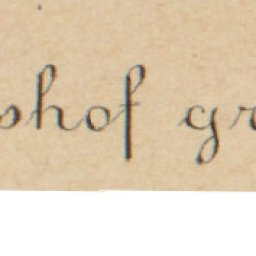 shof gr